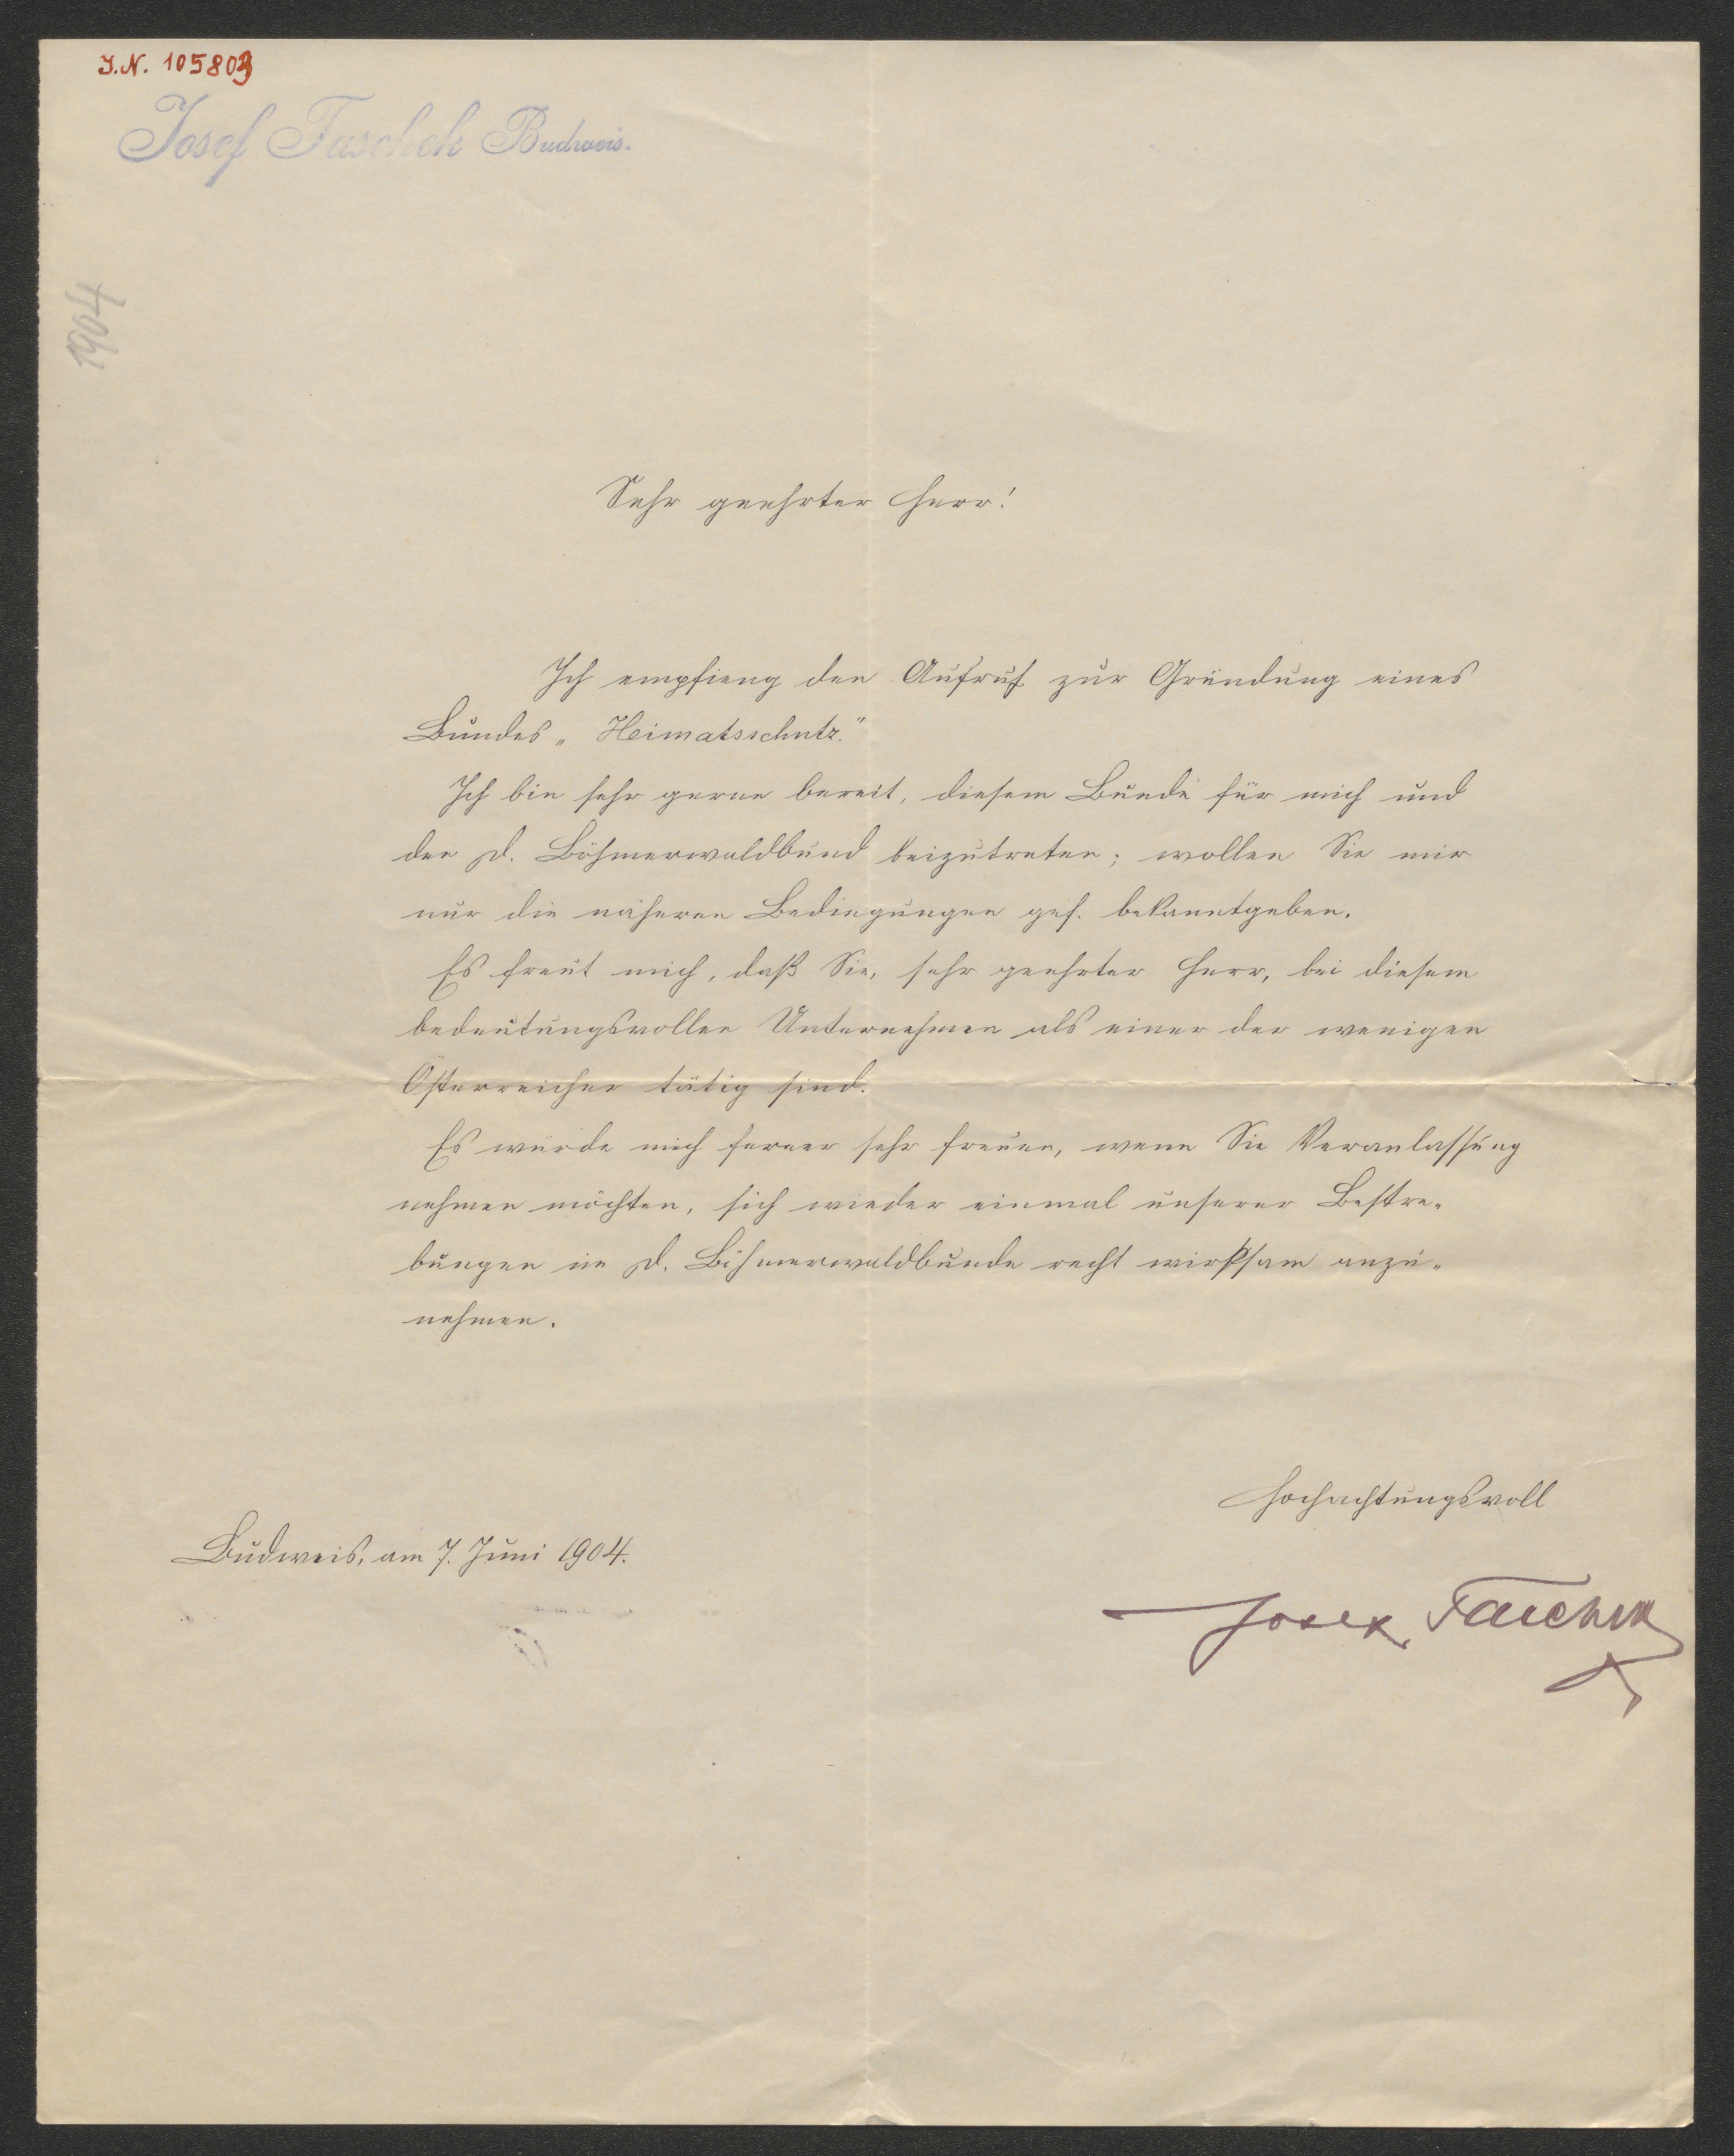 J.N. 105803
Josef Taschek Budweis.
1904
Sehr geehrter Herr!
Ich empfieng den Aufruf zur Gründung eines
Bundes „Heimatsschutz."
Ich bin sehr gerne bereit, diesem Bunde für mich und
den D. Böhmerwaldbund beizutreten; wollen Sie mir
nur die näheren Bedingungen gef. bekanntgeben.
Es freut mich, daß Sie, sehr geehrter Herr, bei diesem
bedeutungsvollen Unternehmen als einer der wenigen
Österreicher tätig sind.
Es würde mich ferner sehr freuen, wenn Sie Veranlassung
nehmen möchten, sich wieder einmal unserer Bestre-
bungen im D. Böhmerwaldbunde recht wirksam anzu-
nehmen.
Hochachtungsvoll
Budweis, am 7. Juni 1904.
Josef Taschek